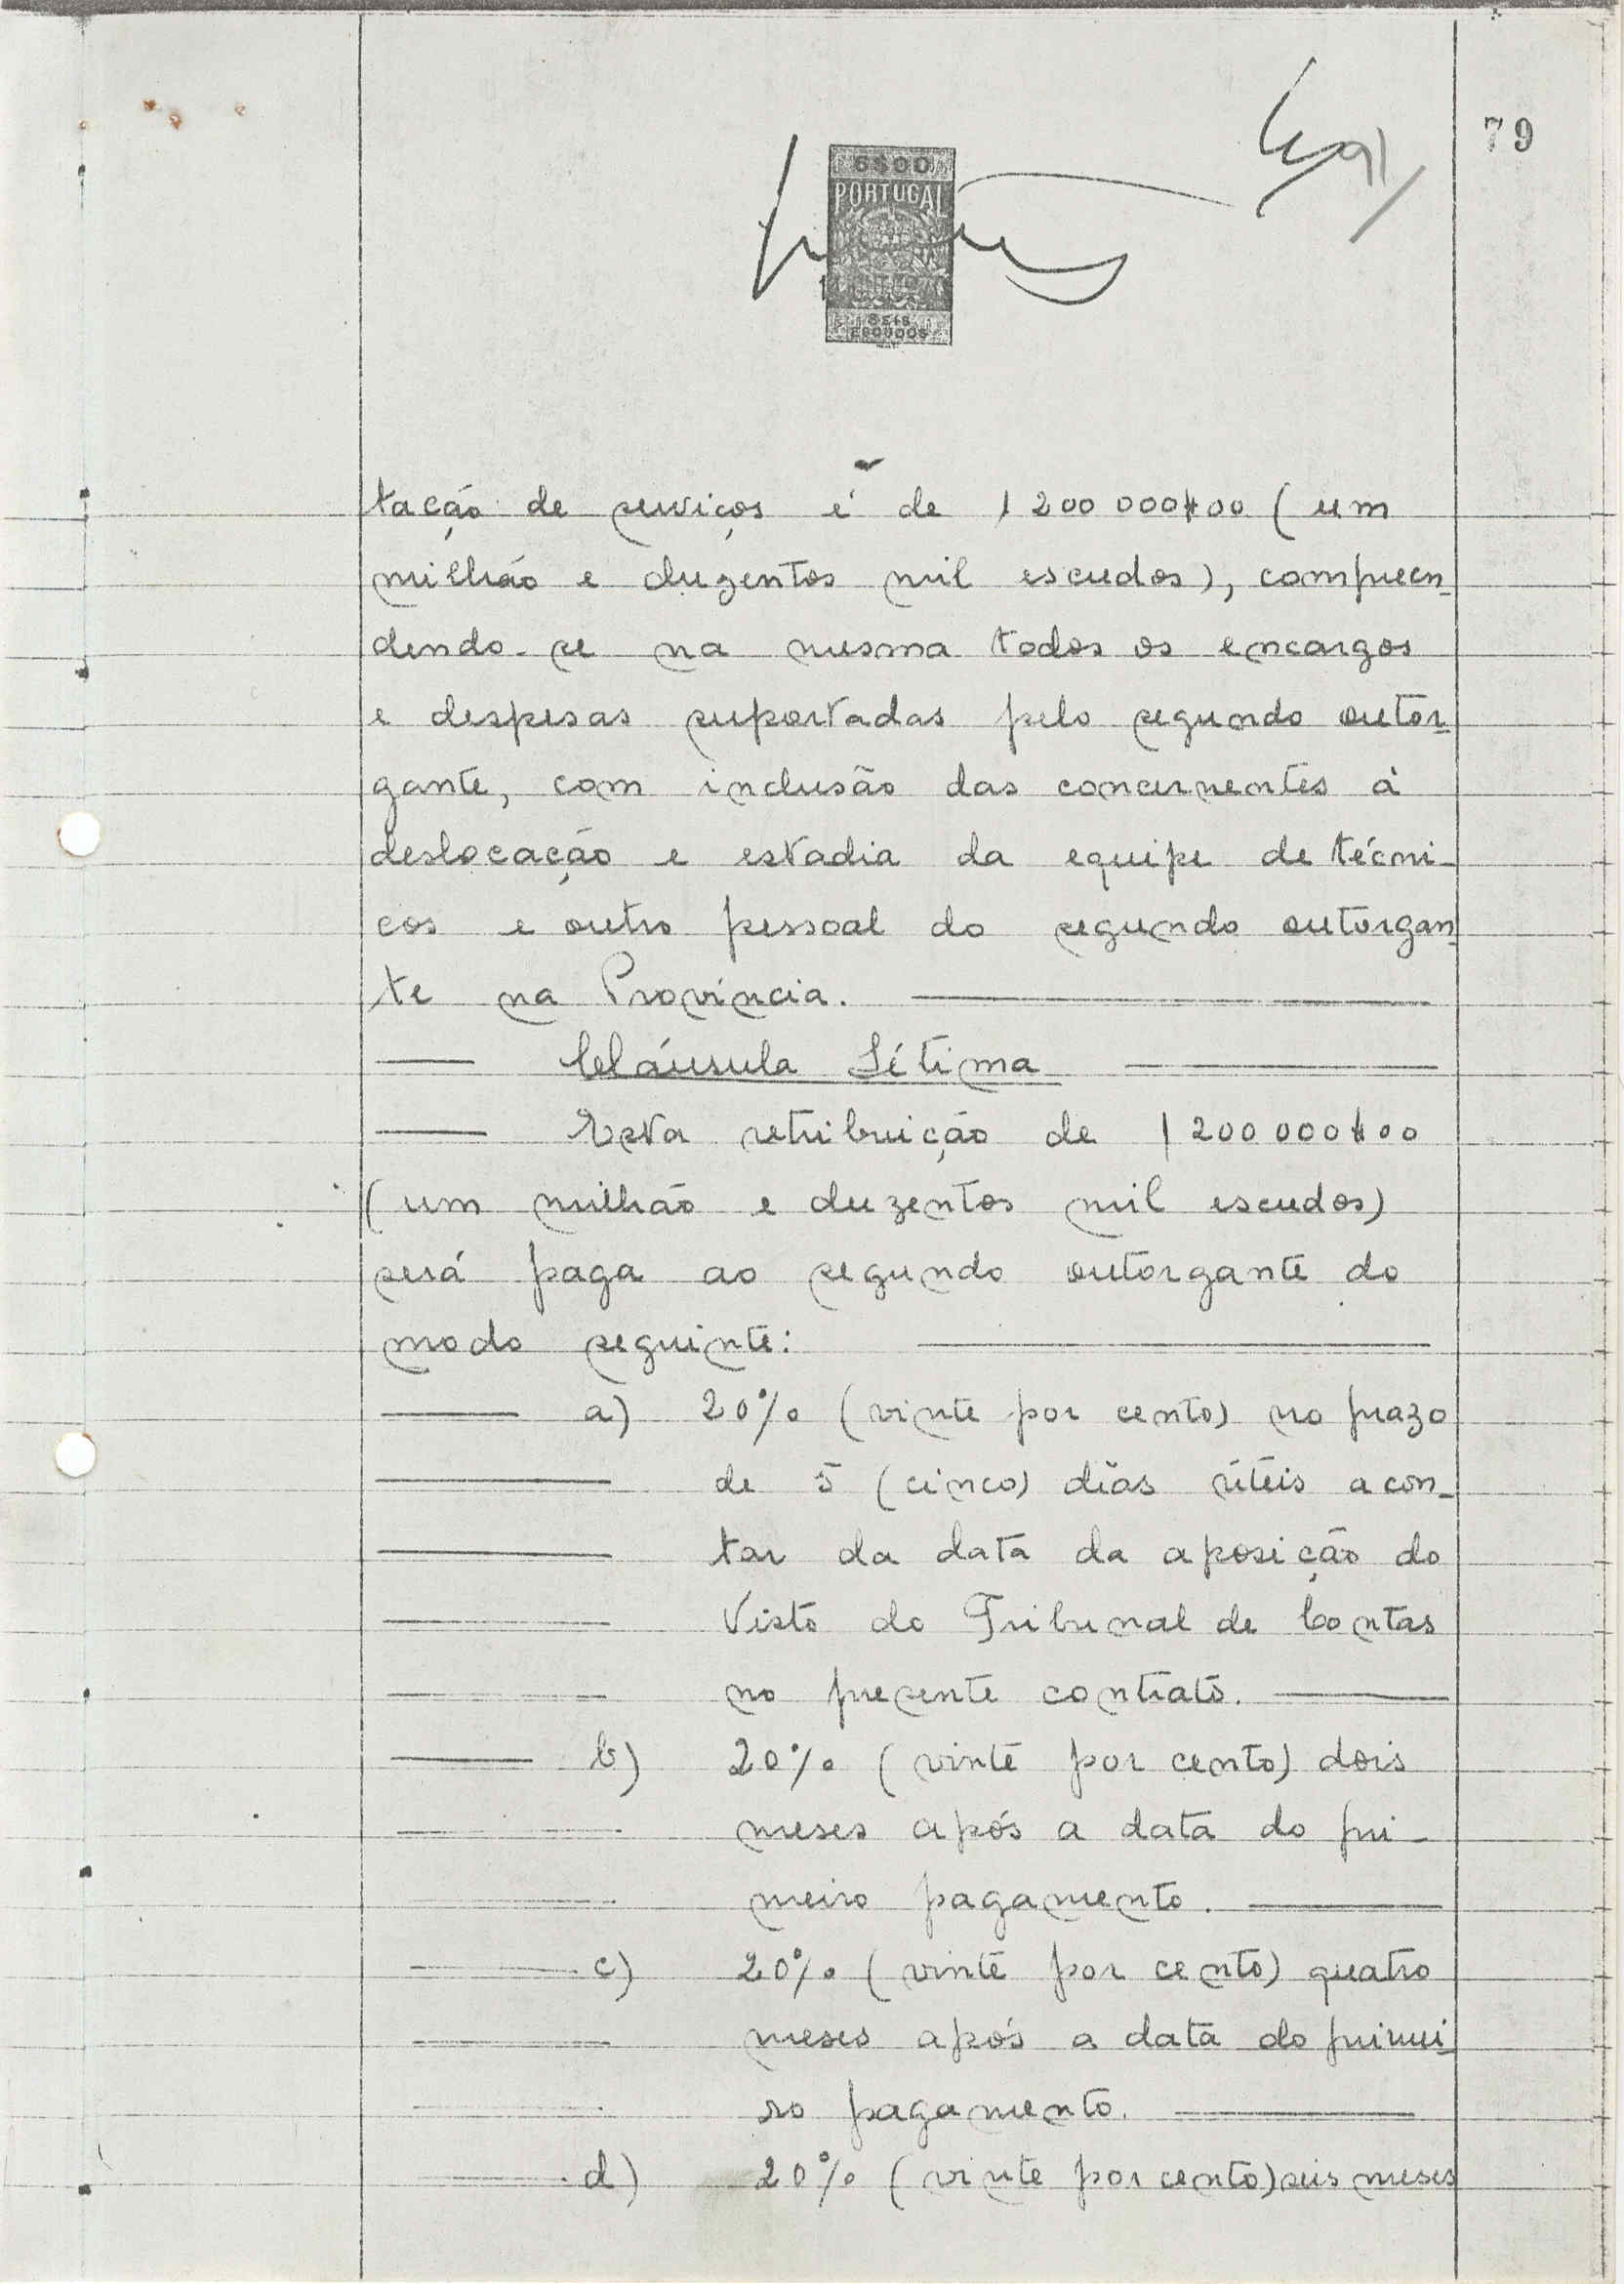 79
91
6$00
PORTUGAL
SEIS
ESCUDOS
tação de serviços é de 1 200 000$00 (um
milhão e duzentos mil escudos), compreen-
dendo-se na mesma todos os encargos
e despesas suportadas pelo segundo outor-
gante, com inclusão das concernentes à
deslocação e estadia da equipe de técni-
cos e outro pessoal do segundo outorgan-
te na Província.
Cláusula Sétima
Esta retribuição de 1 200 000$00
(um milhão e duzentos mil escudos)
será paga ao segundo outorgante do
modo seguinte:
a) 20% (vinte por cento) no prazo
de 5 (cinco) dias úteis a con-
tar da data da aposição do
Visto do Tribunal de Contas
no presente contrato.
b) 20% (vinte por cento) dois
meses após a data do pri-
meiro pagamento.
c) 20% (vinte por cento) quatro
meses após a data do primei-
ro pagamento.
d) 20% (vinte por cento) seis meses